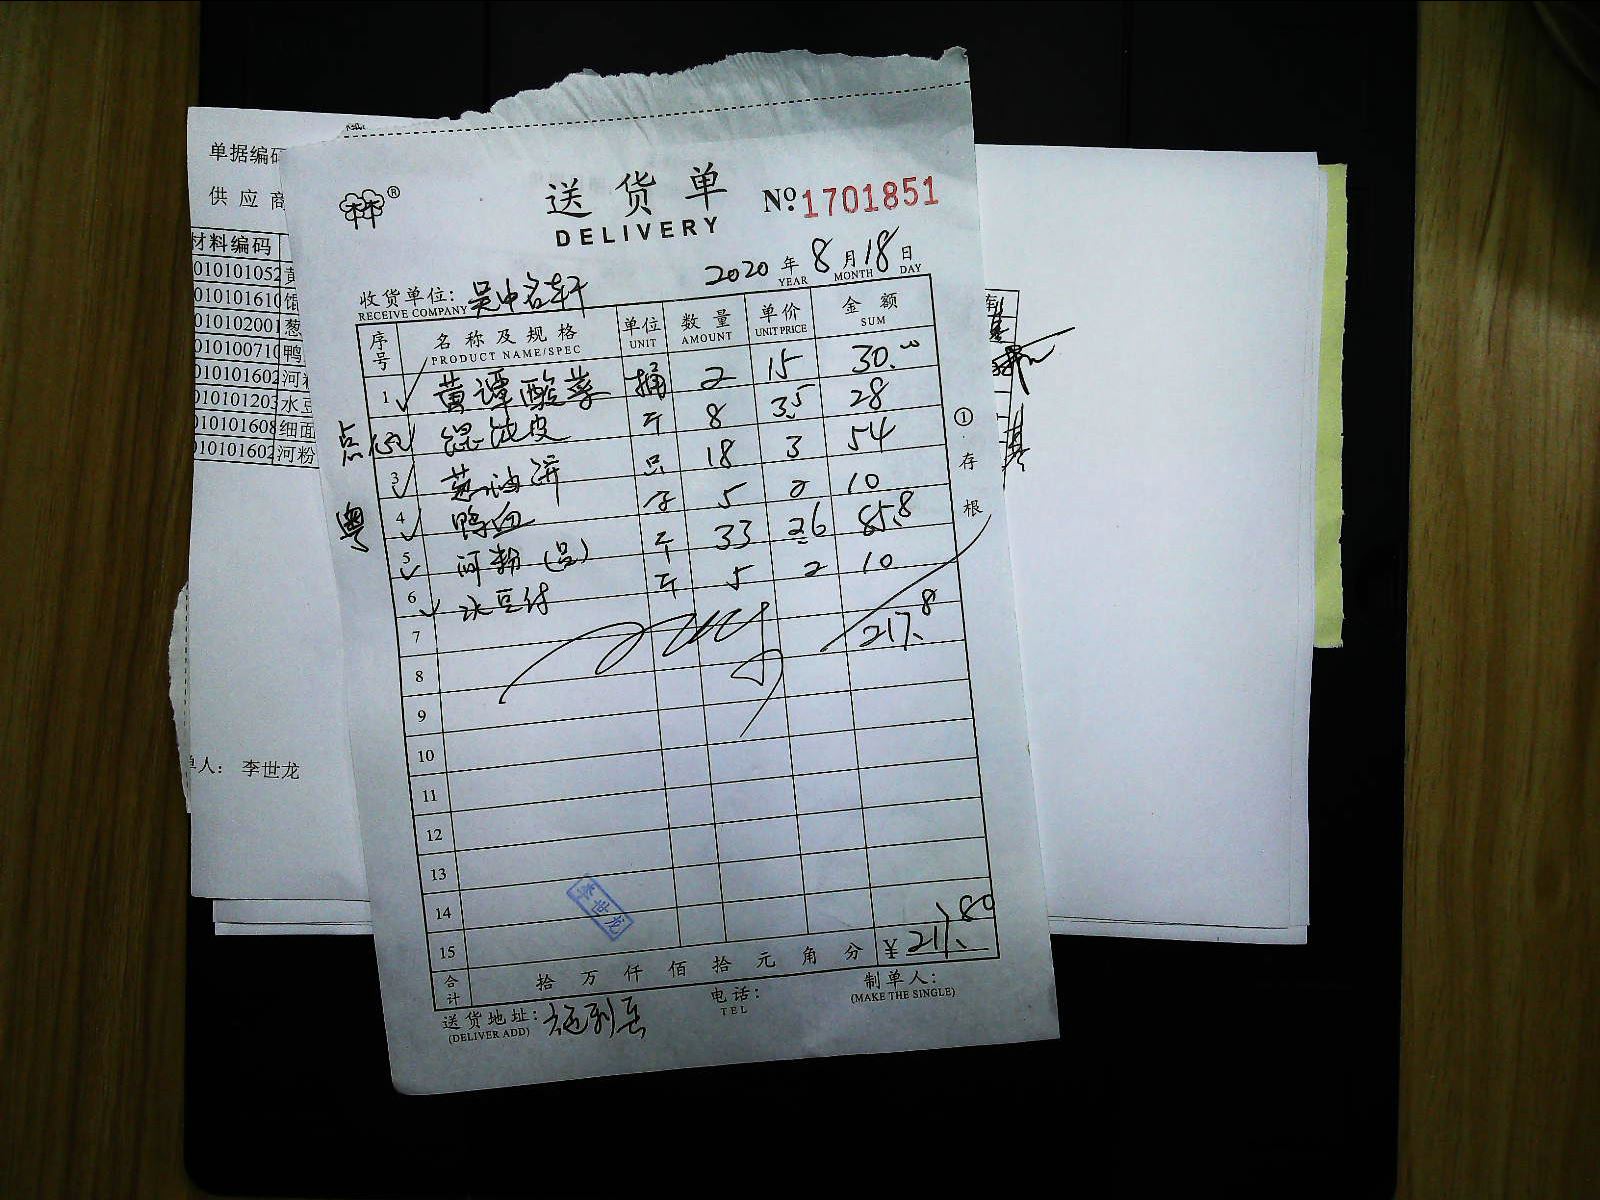 单据编码
供应商
材料编码
010101052 黄
010101610 馄
010102001 葱
010100710 鸭
010101602 河粉
010101203 水豆
010101608 细面
010101602 河粉
单人： 李世龙
林®
送货单
DELIVERY
№ 1701851
2020 年 8 月 18 日
YEAR MONTH DAY
收货单位： 吴中名轩
RECEIVE COMPANY
序号 名称及规格 单位 数量 单价 金额
PRODUCT NAME/SPEC UNIT AMOUNT UNIT PRICE SUM
1 黄谭酸菜 桶 2 15 30.00
点心 馄饨皮 斤 8 3.5 28
3 葱油饼 只 18 3 54
粤 4 鸭血 5 2 10
5 河粉 斤 33 2.6 85.8
6 水豆付 斤 5 2 10
7 217.8
8
9
10
11
12
13
14
15
李世龙
合计 拾 万 仟 佰 拾 元 角 分 ¥ 217.80
送货地址：
(DELIVER ADD)
电话：
TEL
制单人：
(MAKE THE SINGLE)
① 存根